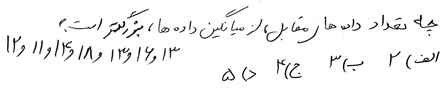 چه تعداد داده های مقابل، از میانگین داده ها، بزرگتر است؟
۱۳ و ۱۶ و ۱۳ و ۱۸ و ۱۴ و ۱۱ و ۱۲
الف) ۲ ب) ۳ ج) ۴ د) ۵